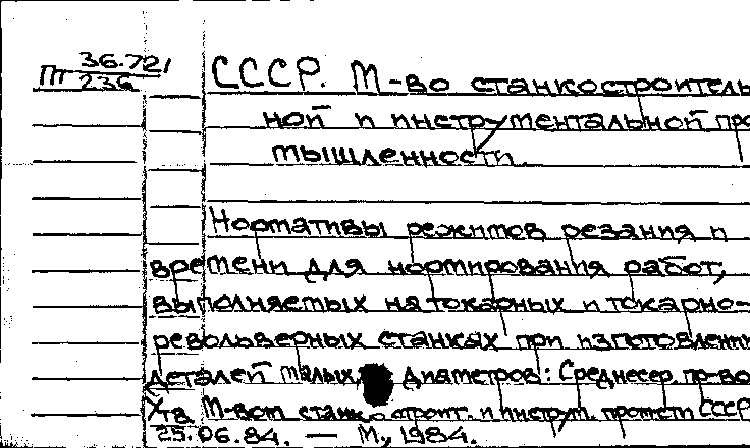 Пт 36.721/236
СССР. М-во станкостроитель
ной и инструментальной про
мышленности.
Нормативы режимов резания и
времени для нормирования работ,
выполняемых на токарных и токарно-
револьверных станках при изготовлении
деталей малых диаметров: Среднесер. пр-во
Утв М-вом станкостроит. и инструм. промсти СССР
25.06.84. — М., 1984.